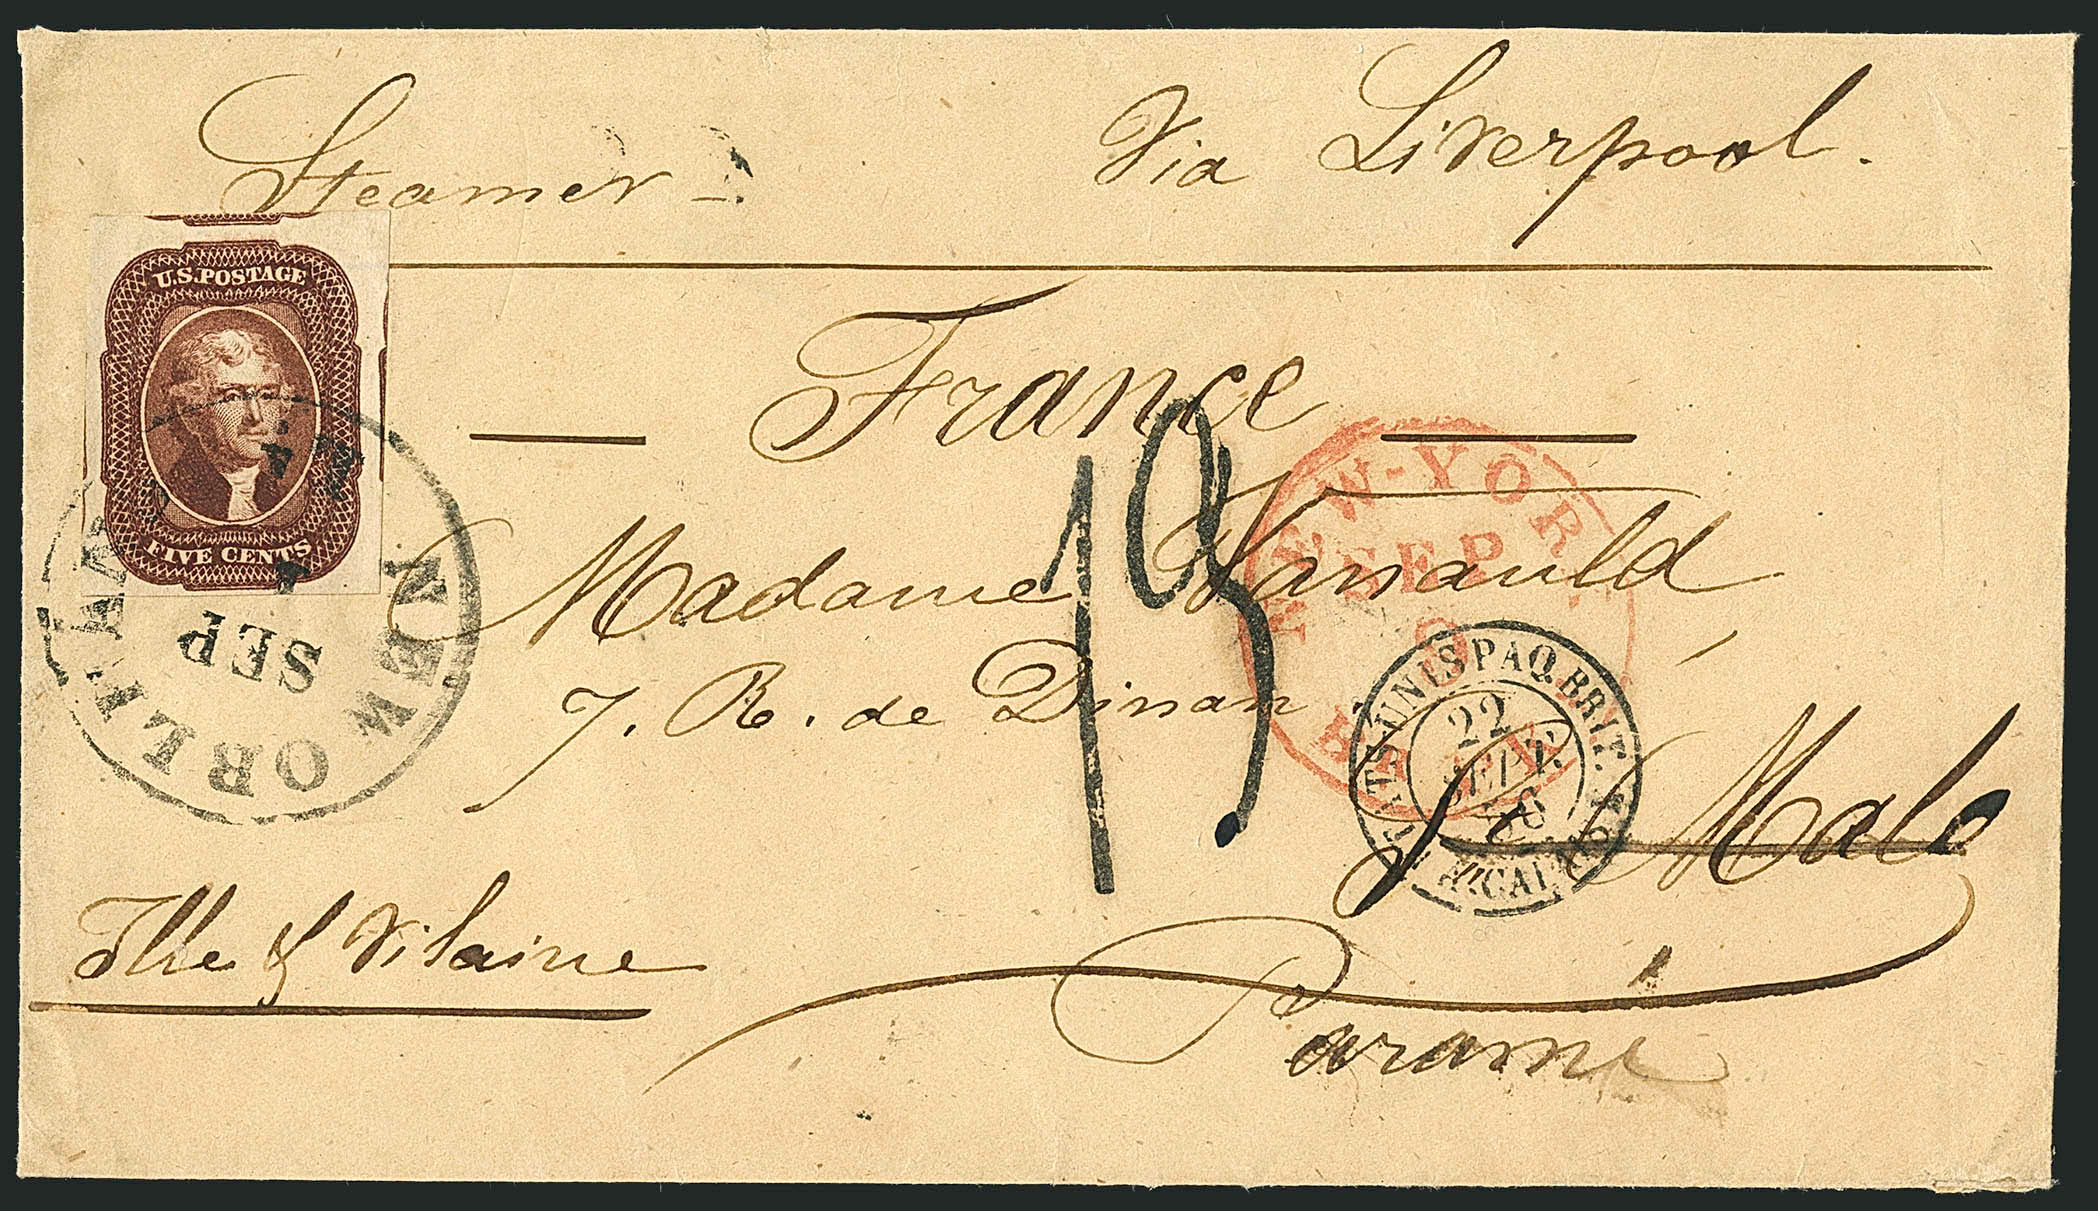 Steamer — Via Liverpool.
U.S. POSTAGE
FIVE CENTS
— France —
NEW ORLEANS La.
SEP
1
13
NEW-YORK
SEP
BR. PKT
Madame
7. R. de Dinan
ETATS-UNIS PAQ. BRIT.
22
SEPT.
56
A. CALAIS
St Malo
Ille & Vilaine
Paramé